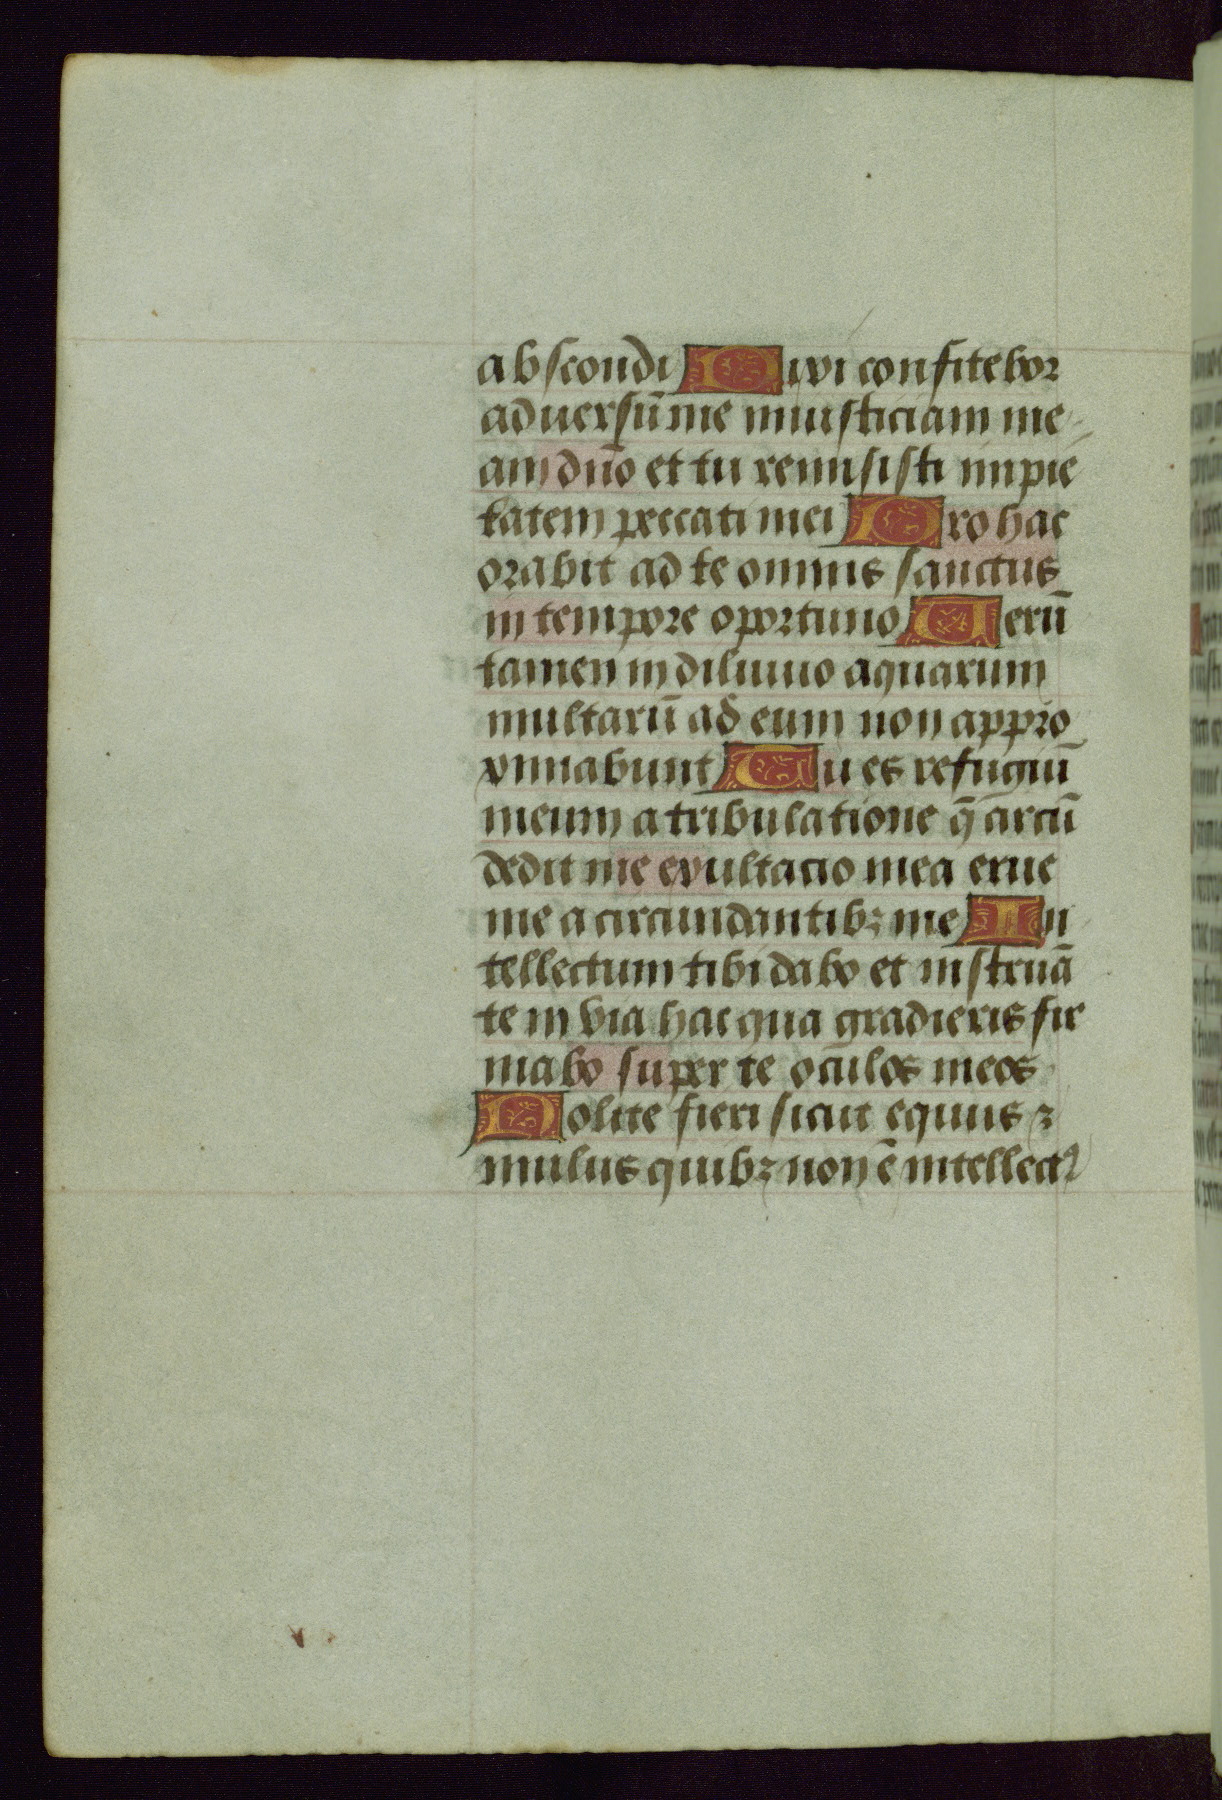 abscondi Dixi confitebor
aduersū me iniusticiam me-
am dn̄o et tu remisisti impie
tatem peccati mei Pro hac
orabit ad te omnis sanctus
in tempore oportuno Uerū
tamen in diluuio aquarum
multarū ad eum non appro
ximabunt Tu es refugiū
meum a tribulatione q̄ circū
dedit me exultacio mea erue
me a circumdantibꝫ me In
tellectum tibi dabo et instruā
te in via hac qua gradieris fir
mabo super te oculos meos
Nolite fieri sicut equus ⁊
mulus quibꝫ non ē intellectꝰ